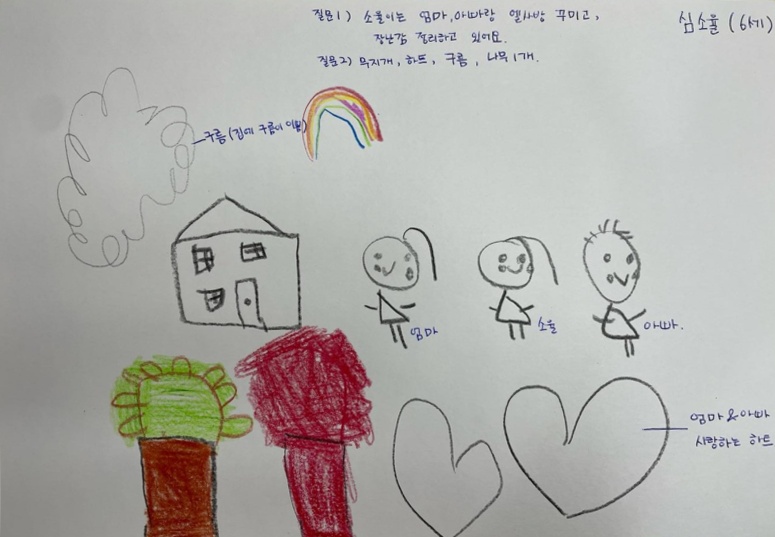 질문1) 소율이는 엄마, 아빠랑 엘사방 꾸미고,
장난감 정리하고 있어요.
심소율 (6세)
질문2) 무지개, 하트, 구름, 나무 1개.
구름 (집에 구름이 있음)
엄마
소율
아빠.
엄마 & 아빠
사랑하는 하트